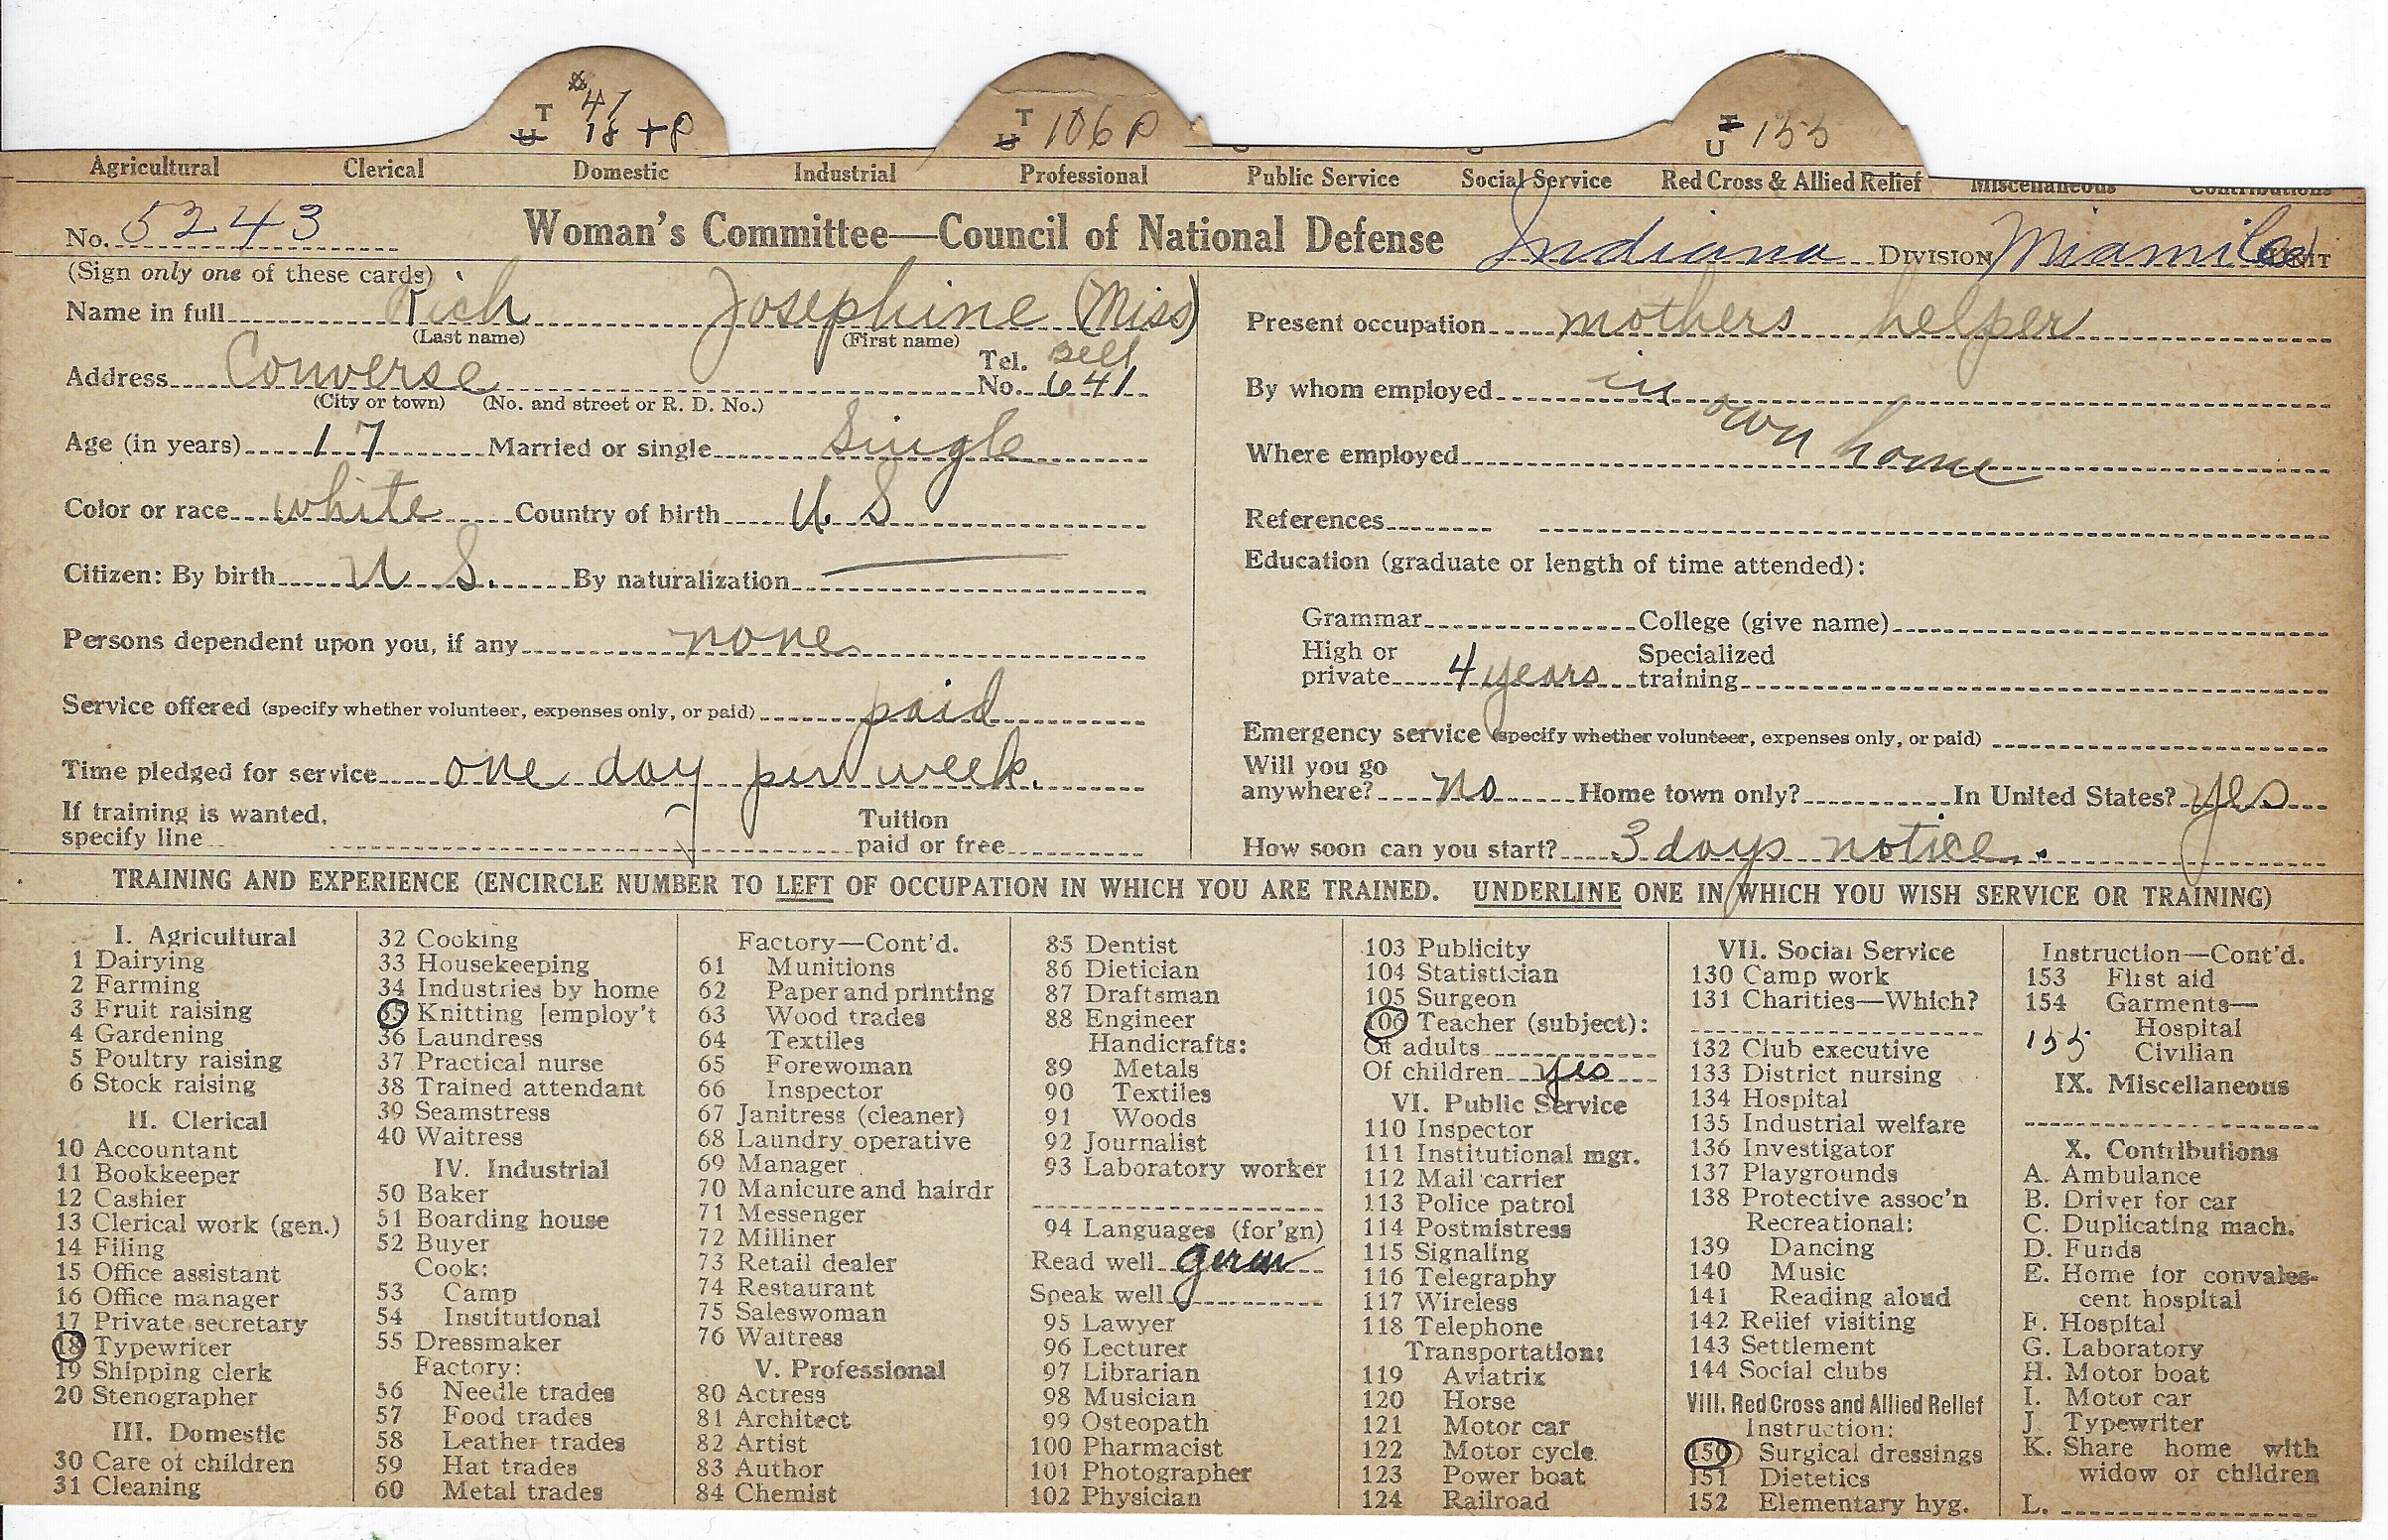 41
T
U 18 + P
T
U 106 P
T
U 155
Agricultural Clerical Domestic Industrial Professional Public Service Social Service Red Cross & Allied Relief Miscellaneous Contributions
No. 5243 Woman's Committee—Council of National Defense Indiana DIVISION Miami Co UNIT
(Sign only one of these cards)
Name in full Rich Josephine (Miss)
(Last name) (First name)
Address Converse Tel. No. Bell 641
(City or town) (No. and street or R. D. No.)
Age (in years) 17 Married or single Single
Color or race white Country of birth U S
Citizen: By birth U S. By naturalization
Persons dependent upon you, if any none
Service offered (specify whether volunteer, expenses only, or paid) paid
Time pledged for service one day per week.
If training is wanted,
specify line
Tuition
paid or free
Present occupation mothers helper
By whom employed in own home
Where employed
References
Education (graduate or length of time attended):
Grammar College (give name)
High or
private 4 years Specialized
training
Emergency service (specify whether volunteer, expenses only, or paid)
Will you go
anywhere? no Home town only? In United States? yes
How soon can you start? 3 days notice.
TRAINING AND EXPERIENCE (ENCIRCLE NUMBER TO LEFT OF OCCUPATION IN WHICH YOU ARE TRAINED. UNDERLINE ONE IN WHICH YOU WISH SERVICE OR TRAINING)
I. Agricultural
1 Dairying
2 Farming
3 Fruit raising
4 Gardening
5 Poultry raising
6 Stock raising
II. Clerical
10 Accountant
11 Bookkeeper
12 Cashier
13 Clerical work (gen.)
14 Filing
15 Office assistant
16 Office manager
17 Private secretary
18 Typewriter
19 Shipping clerk
20 Stenographer
III. Domestic
30 Care of children
31 Cleaning
32 Cooking
33 Housekeeping
34 Industries by home
35 Knitting [employ't
36 Laundress
37 Practical nurse
38 Trained attendant
39 Seamstress
40 Waitress
IV. Industrial
50 Baker
51 Boarding house
52 Buyer
Cook:
53 Camp
54 Institutional
55 Dressmaker
Factory:
56 Needle trades
57 Food trades
58 Leather trades
59 Hat trades
60 Metal trades
Factory—Cont'd.
61 Munitions
62 Paper and printing
63 Wood trades
64 Textiles
65 Forewoman
66 Inspector
67 Janitress (cleaner)
68 Laundry operative
69 Manager
70 Manicure and hairdr
71 Messenger
72 Milliner
73 Retail dealer
74 Restaurant
75 Saleswoman
76 Waitress
V. Professional
80 Actress
81 Architect
82 Artist
83 Author
84 Chemist
85 Dentist
86 Dietician
87 Draftsman
88 Engineer
Handicrafts:
89 Metals
90 Textiles
91 Woods
92 Journalist
93 Laboratory worker
94 Languages (for'gn)
Read well germ
Speak well
95 Lawyer
96 Lecturer
97 Librarian
98 Musician
99 Osteopath
100 Pharmacist
101 Photographer
102 Physician
103 Publicity
104 Statistician
105 Surgeon
106 Teacher (subject):
Of adults
Of children yes
VI. Public Service
110 Inspector
111 Institutional mgr.
112 Mail carrier
113 Police patrol
114 Postmistress
115 Signaling
116 Telegraphy
117 Wireless
118 Telephone
Transportation:
119 Aviatrix
120 Horse
121 Motor car
122 Motor cycle
123 Power boat
124 Railroad
VII. Social Service
130 Camp work
131 Charities—Which?
132 Club executive
133 District nursing
134 Hospital
135 Industrial welfare
136 Investigator
137 Playgrounds
138 Protective assoc'n
Recreational:
139 Dancing
140 Music
141 Reading aloud
142 Relief visiting
143 Settlement
144 Social clubs
VIII. Red Cross and Allied Relief
Instruction:
150 Surgical dressings
151 Dietetics
152 Elementary hyg.
Instruction—Cont'd.
153 First aid
154 Garments—
Hospital
155 Civilian
IX. Miscellaneous
X. Contributions
A. Ambulance
B. Driver for car
C. Duplicating mach.
D. Funds
E. Home for convales-
cent hospital
F. Hospital
G. Laboratory
H. Motor boat
I. Motor car
J. Typewriter
K. Share home with
widow or children
L.